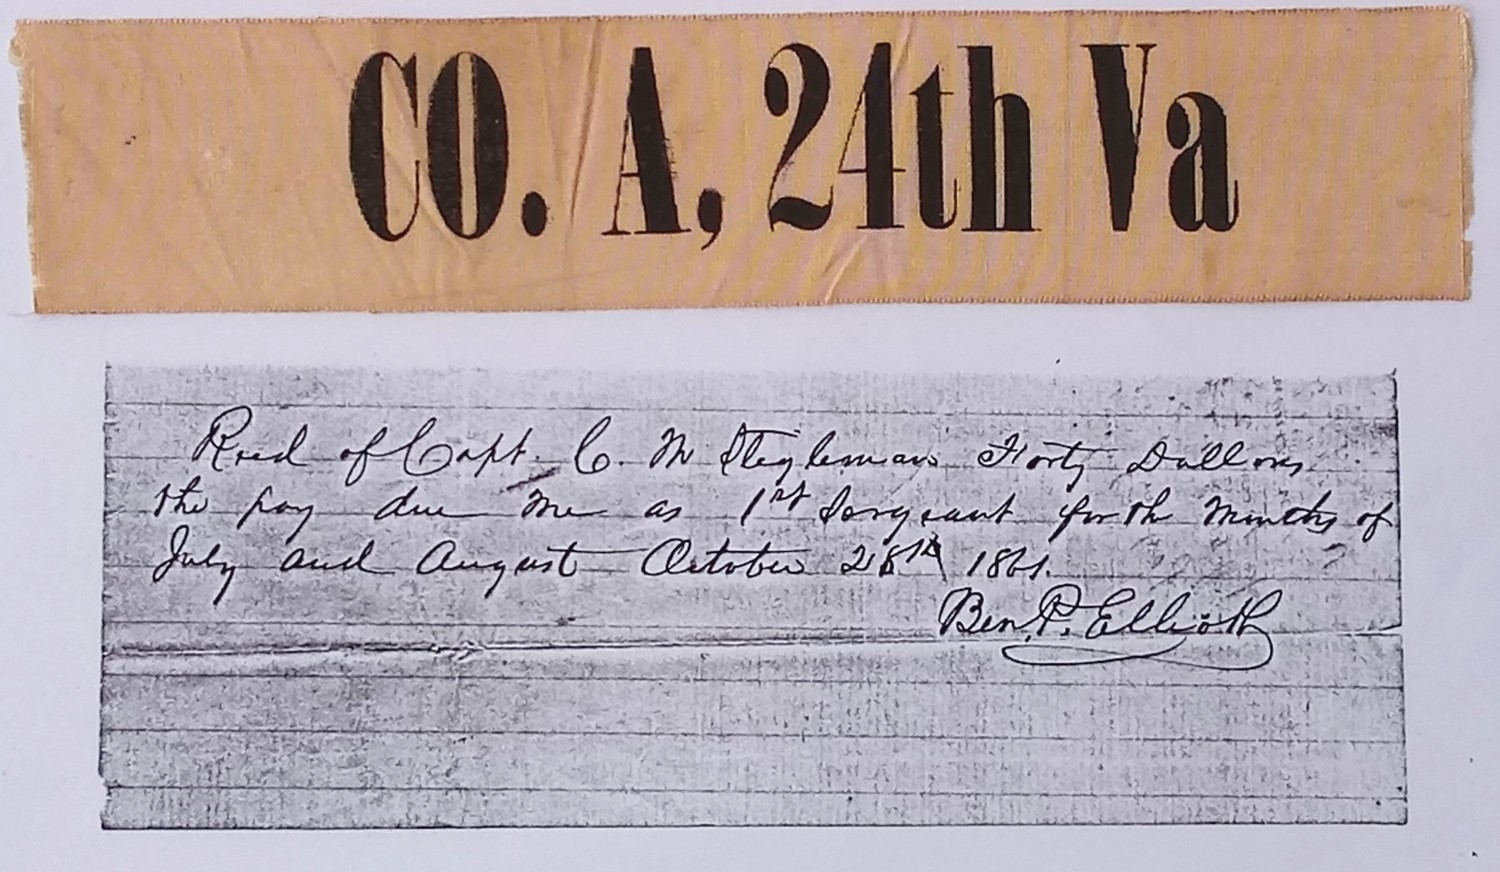 CO. A, 24th Va
Recd of Capt. C. M Stegleman Forty Dollars
the pay due me as 1st Sergeant for th Months of
July and August October 28th 1861.
Ben. P. Elliott